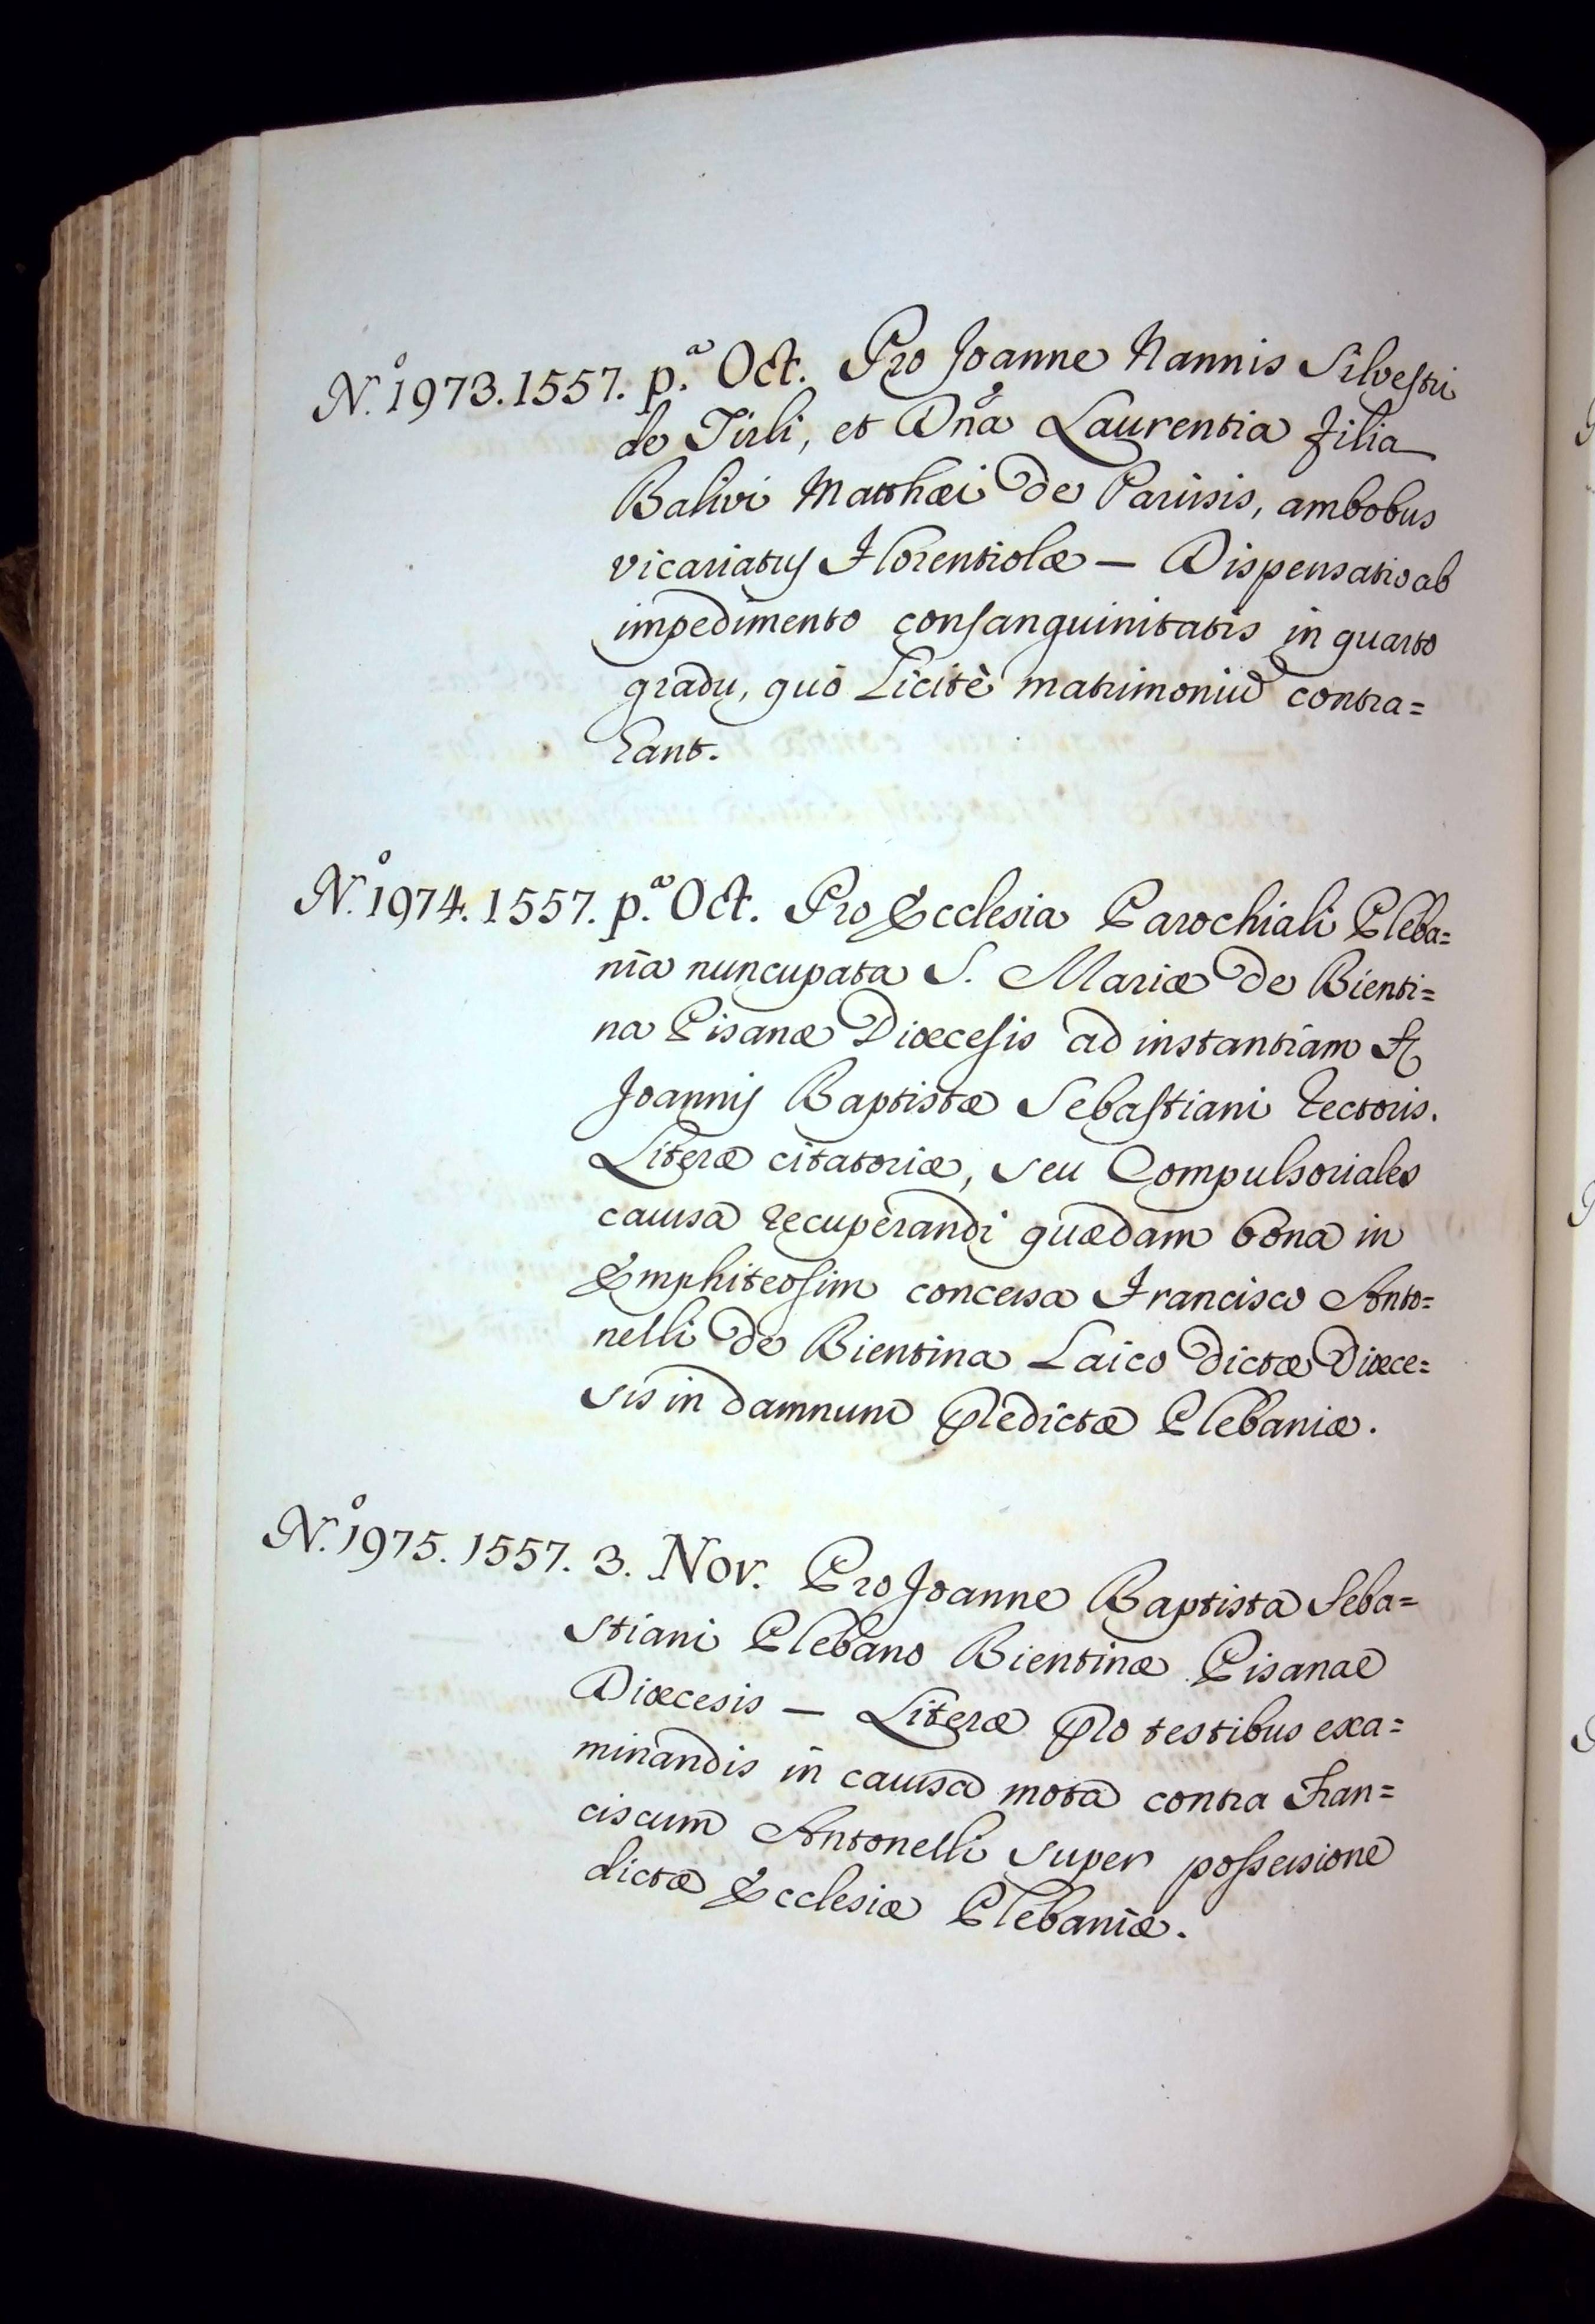 N.º 1973. 1557. p.ª Oct. Pro Joanne Nannis Silvestri
de Tirli, et Dña Laurentia filia
Balivi Matthæi de Pariisis, ambobus
vicariatus Florentiolæ — Dispensatio ab
impedimento consanguinitatis in quarto
gradu, quò Licitè matrimoniũ contra=
hant.
N.º 1974. 1557. p.ª Oct. Pro Ecclesia Parochiali Pleba=
nia nuncupata S. Mariæ de Bienti=
na Pisanæ Diœcesis ad instantiam
Joannis Baptistæ Sebastiani Rectoris.
Literæ citatoriæ, seu Compulsoriales
causa recuperandi quædam bona in
Emphiteosim concessa Francisco Anto=
nelli de Bientina Laico dictæ Diœce=
sis in damnum predictæ Plebaniæ.
N.º 1975. 1557. 3. Nov. Pro Joanne Baptista Seba=
stiani Plebano Bientinæ Pisanae
Diœcesis — Literæ pro testibus exa=
minandis in causa mota contra Fran=
ciscum Antonelli super possessione
dictæ Ecclesiæ Plebaniæ.